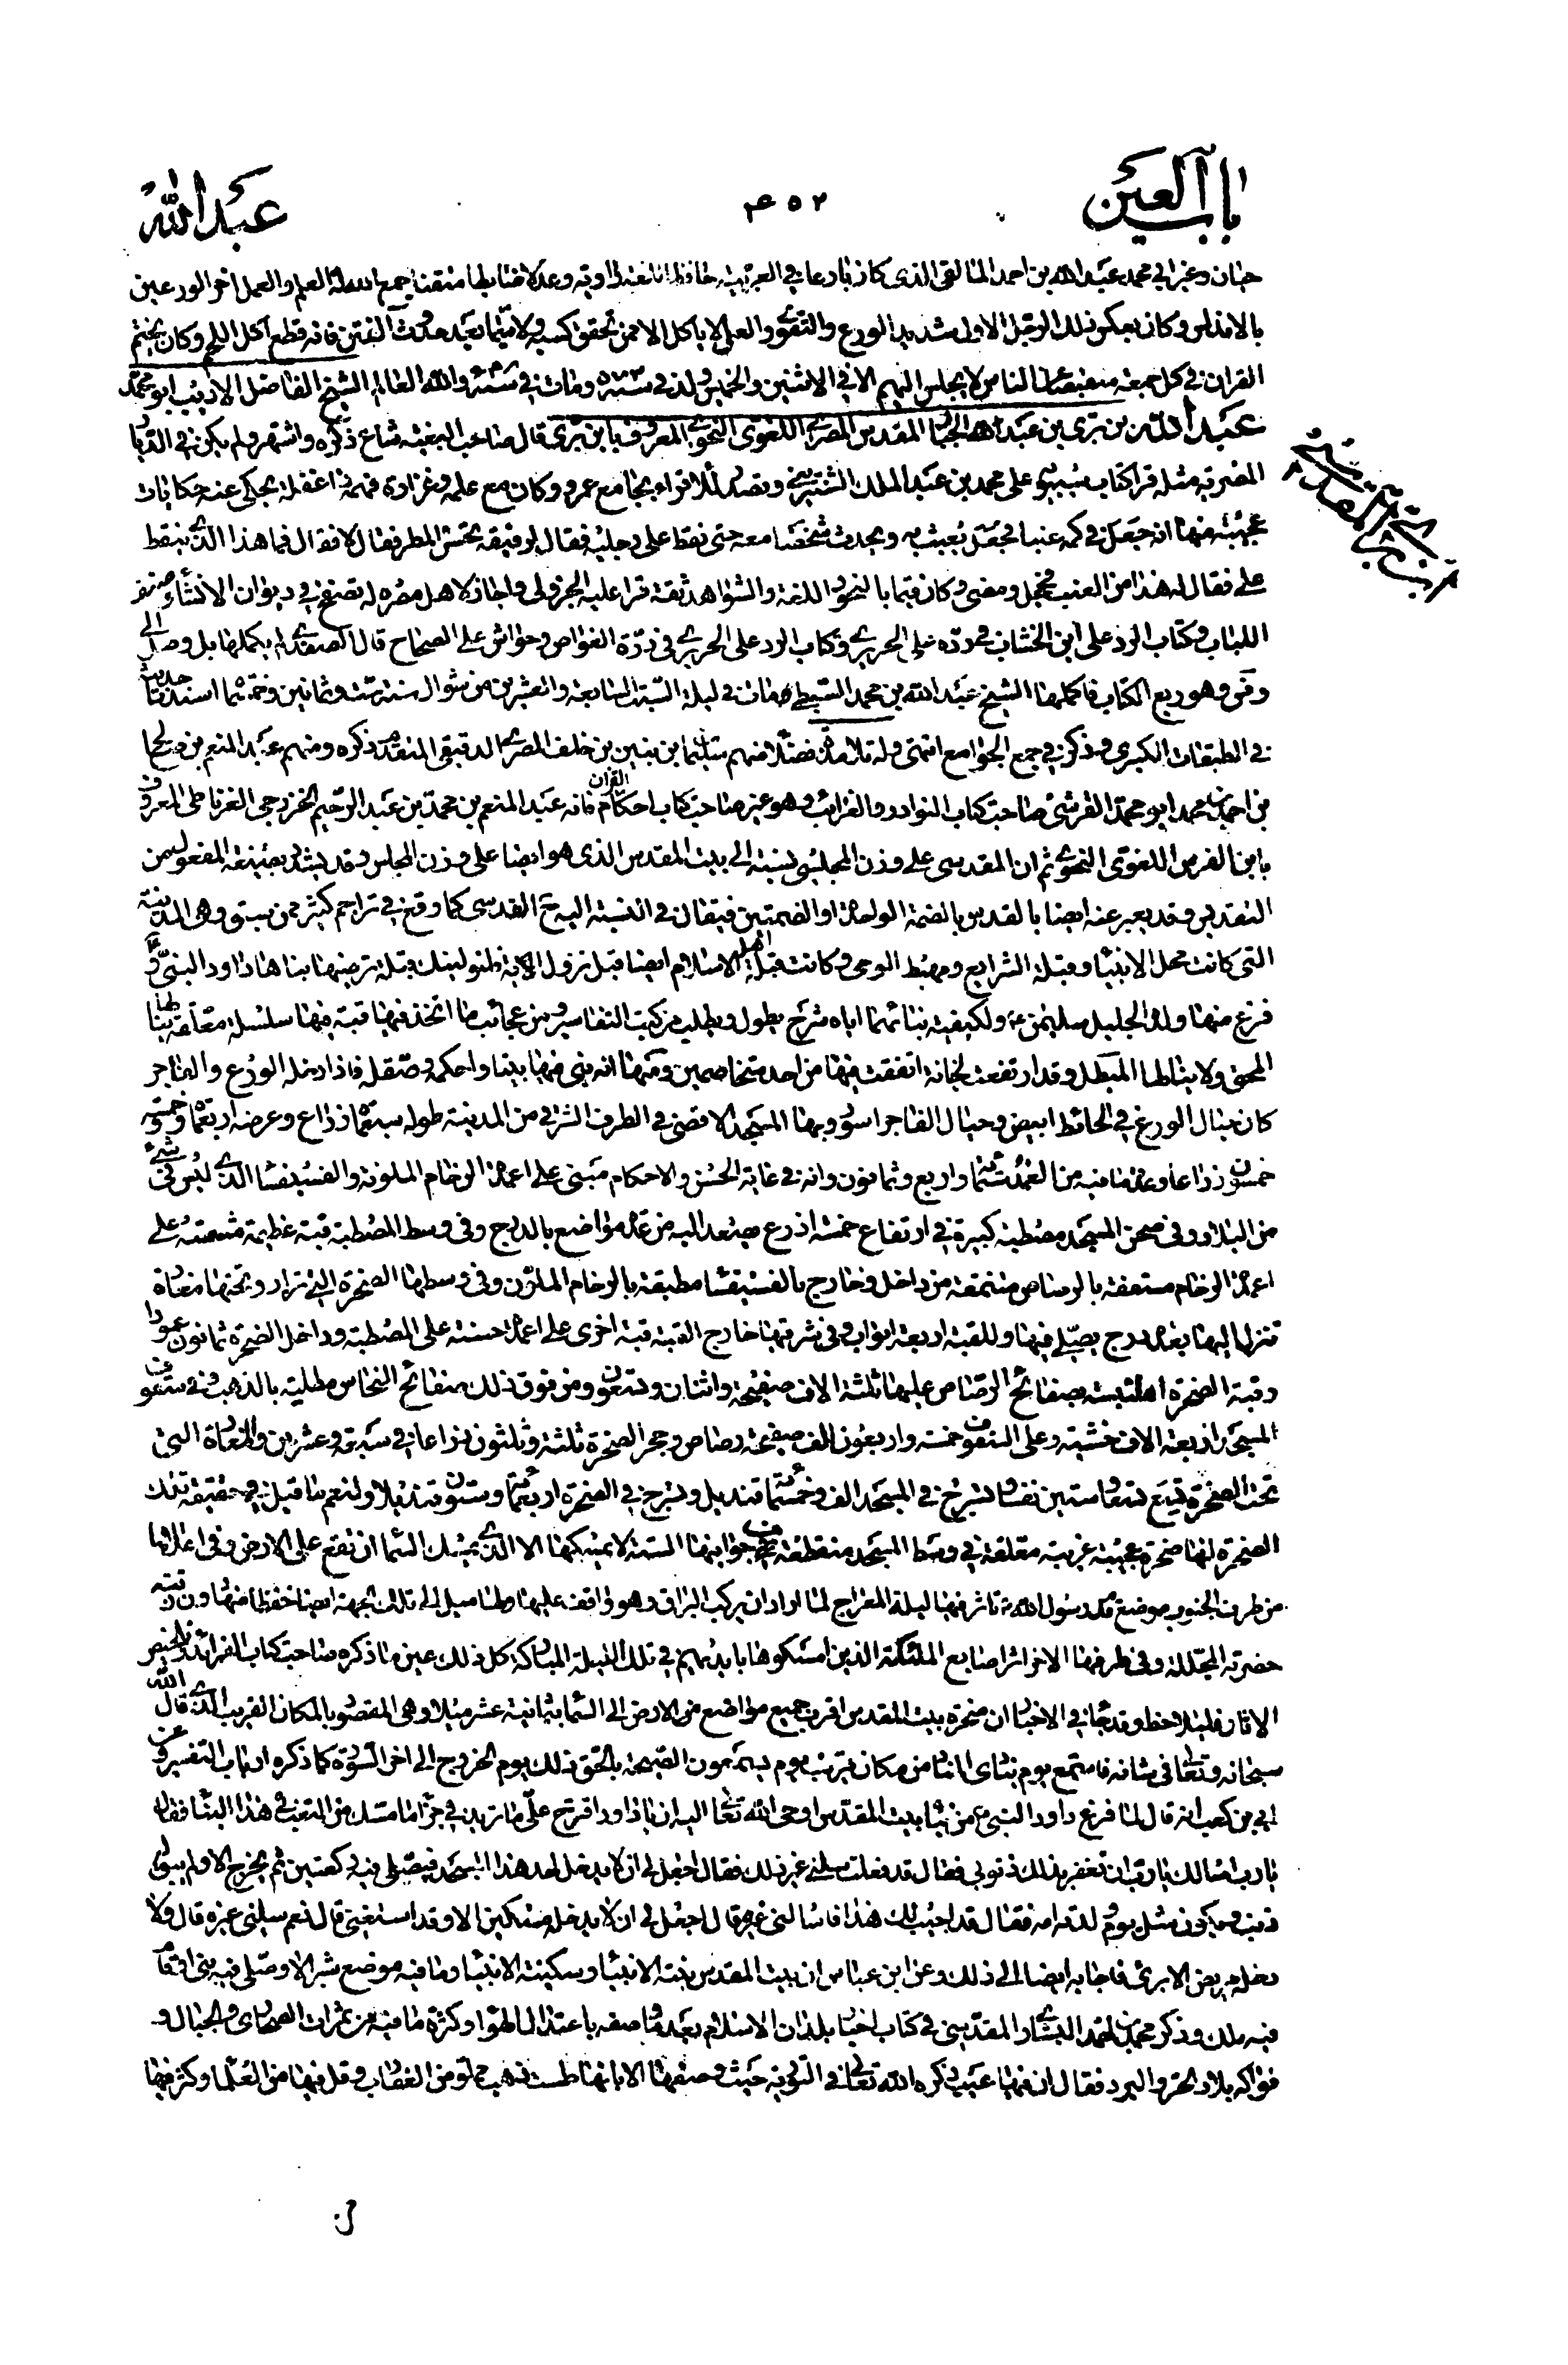 باب العين
٤٥٢
عبد الله
حيان وغير ابي محمد عبد الله بن احمد المالقي الذي كان بارعا في العربية حافظا للغة راوية وعدلا ضابطا متقنا جمع الله له العلم والعمل اخر الورعين
بالاندلس وكان يعكس ذلك الرجل الاول شديد الورع والتقوى والعمل لا ياكل الا ممن تحقق كسبه ولا سيما بعد حدوث الفتن فانه قطع اكل اللحم وكان يختم
القران في كل جمعة منقبضا عن الناس لا يجلس اليهم الا في الاثنين والخميس ولد في سنة ٥٧٣ ومات في سنة والله العالم الشيخ الفاضل الاديب ابو محمد
عبد الله بن بري بن عبد الجبار المقدسي المصري اللغوي النحوي المعروف بابن بري قال صاحب البغية شاع ذكره واشتهر ولم يكن في الديار
المصرية مثله قرا كتاب سيبويه على محمد بن عبد الملك الشنتريني وتصدر للاقراء بجامع عمرو وكان مع علمه وغزارة فهمه ذا غفلة يحكى عنه حكايات
عجيبة منها انه جعل في كمه عنبا فجعل يعبث به ويحدث شخصا معه حتى نقط على رجليه فقال لرفيقه تحس المطر فقال لا فقال فما هذا الذي ينقط
علي فقال له هذا من العنب فخجل ومضى وكان قيما بالنحو واللغة والشواهد ثقة قرا عليه الجزولي واجاز لاهل مصره له تصفح في ديوان الانشاء وصنف
اللباب وكتاب الرد على ابن الخشاب في رده على الحريري وكتاب الرد على الحريري في درة الغواص وحواش على الصحاح قال الصفدي لم يكملها بل وصل الى
وقش وهو ربع الكتاب فاكملها الشيخ عبد الله بن محمد البسطي ومات في ليلة السبت السابعة والعشرين من شوال سنة ست وثمانين وخمسمائة اسندنا حديثه
في الطبقات الكبرى وذكر في جمع الجوامع انتهى وله تلامذة فضلا منهم سليمان بن بنين بن خلف المصري الدقيقي المتقدم ذكره ومنهم عبد المنعم بن صالح
بن احمد بن محمد ابو محمد القرشي صاحب كتاب النوادر والغرائب وهو غير صاحب كتاب احكام القران فانه عبد المنعم بن محمد بن عبد الرحيم الخزرجي الغرناطي المعروف
بابن الفرس اللغوي النحوي ثم ان المقدسي على وزن المجلسي نسبة الى بيت المقدس الذي هو ايضا على وزن المجلس وقد يشدد بصيغة المفعول من
التقديس وقد يعبر عنه ايضا بالقدس بالضمة الواحدة او الضمتين فيقال في النسبة اليه ح القدسي كما وقع في تراجم كثير ممن سبق وهي المدينة
التي كانت محل الانبيا وقبلة الشرايع ومهبط الوحي وكانت قبلة اهل الاسلام ايضا قبل نزول الاية فلنولينك قبلة ترضيها بناها داود النبي ع و
فرغ منها ولده الجليل سليمن ع ولكيفية بنائهما اياه شرح يطول ويطلب من كتب التفاسير ومن عجائب ما اتخذ فيها قبة فيها سلسلة معلقة ينالها
المحق ولا ينالها المبطل وقد ارتفعت لخيانة اتفقت فيها من احد متخاصمين ومنها انه بنى فيها بيتا واحكمه وصقله فاذا دخله الورع والفاجر
كان خيال الورع في الحائط ابيض وخيال الفاجر اسود وبها المسجد الاقصى في الطرف الشرقي من المدينة طوله سبعمائة ذراع وعرضه اربعمائة وخمسة
خمسون ذراعا وعدة ما فيه من العمد ستمائة واربع وثمانون وانه في غاية الحسن والاحكام مبنى على اعمدة الرخام الملونة والفسيفسا الذي ليس في شيء
من البلاد وفي صحن المسجد مصطبة كبيرة في ارتفاع خمسة اذرع يصعد اليه من عدة مواضع بالدرج وفي وسط المصطبة قبة عظيمة مثمنة على
اعمدة الرخام مسقفة بالرصاص منمقة من داخل وخارج بالفسيفسا مطبقة بالرخام الملون وفي وسطها الصخرة التي تزار وتحتها مغارة
تنزل اليها بعدة درج يصلى فيها وللقبة اربعة ابواب وفي شرقيها خارج القبة قبة اخرى على اعمدة حسنة على المصطبة وداخل الصخرة ثمانون عمودا
وقبة الصخرة ملبسة بصفائح الرصاص عليها ثلثة الاف صفيحة واثنان وتسعون ومن فوق ذلك صفائح النحاس مطلية بالذهب وفي سقوف
المسجد اربعة الاف خشبة وعلى السقوف خمسة واربعون الف صفيحة رصاص وحجر الصخرة ثلثة وثلثون ذراعا في سبعة وعشرين والمغارة التي
تحت الصخرة تسع تسعا وستين نفسا ويسرج في المسجد الف وخمسمائة قنديل ويسرج في الصخرة اربعمائة وستون قنديلا ولنعم ما قيل في حقيقة تلك
الصخرة انها صخرة عجيبة غريبة معلقة في وسط المسجد منقطعة من جوانبها الستة لا يمسكها الا الذي يمسك السما ان تقع على الارض وفي اعلاها
من طرف الجنوب موضع قدم رسول الله ص تاثر فيها ليلة المعراج لما اراد ان يركب البراق وهو واقف عليها ولها ميل الى تلك الجهة ايضا حفظا منها
حضرته المجللة وفي طرفها الاخر اثر اصابع الملئكة الذين امسكوها بايديهم في تلك الليلة المباركة كل ذلك عين ما ذكره صاحب كتاب الفرائد وتلخيص
الاثار فليلاحظ وقد جاء في الاخبار ان صخرة بيت المقدس اقرب جميع مواضع من الارض الى السما بثمانية عشر ميلا وهي المقصود بالمكان القريب الذي قال الله
سبحانه وتعالى في شانه فاستمع يوم يناد المناد من مكان قريب يوم يسمعون الصيحة بالحق ذلك يوم الخروج الى اخر السورة كما ذكره ارباب التفسير وعن
ابي بن كعب انه قال لما فرغ داود النبي ع من بنا بيت المقدس اوحى الله تعالى اليه ان يا داود اقترح علي ما تريد في جزا ما مسك من التعب في هذا البنا فقال
يا رب اسالك يا رب ان تغفر بذلك ذنوبي فقال قد فعلت سلني غير ذلك فقال اجعل لي ان لا يدخل احد هذا المسجد فيصلي فيه ركعتين ثم يخرج الا ولم يبق له
ذنب ويكون مثل يوم ولدته امه فقال قد اجبت لك هذا فاسالني غيره قال اجعل لي ان لا يدخله مسكين الا وقد استغنى قال نعم سلني غيره قال ولا
دخله مريض الا برئ فاجابه ايضا الى ذلك وعن ابن عباس ان بيت المقدس بنته الانبيا وسكنته الانبيا وما فيه موضع شبر الا وصلى فيه نبي او قام
فيه ملك وذكر محمد بن احمد البشاري المقدسي في كتاب اخبار بلدان الاسلام بعد ما وصفه باعتدال الهوا وكثرة ما فيه من ثمرات الصحاري والجبال و
فواكه بلاد الحر والبرد فقال ان فيها عيب ذكره الله تعالى في التورية حيث وصفها الا بانها طست ذهب مملو من العقارب وقل فيها من العلما وكثر فيها